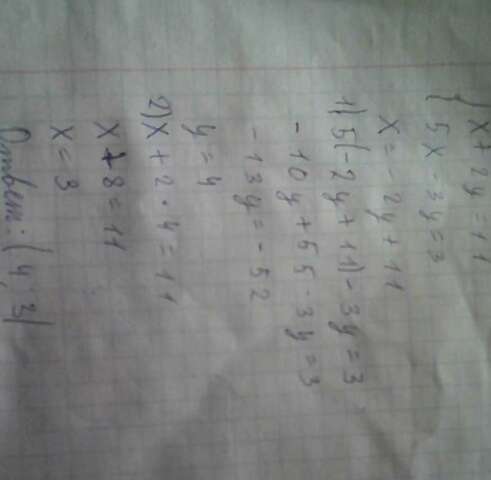 { x + 2y = 11
{ 5x - 3y = 3
x = -2y + 11
1) 5(-2y + 11) - 3y = 3
-10y + 55 - 3y = 3
-13y = -52
y = 4
2) x + 2 · 4 = 11
x + 8 = 11
x = 3
Ответ: (4; 3)